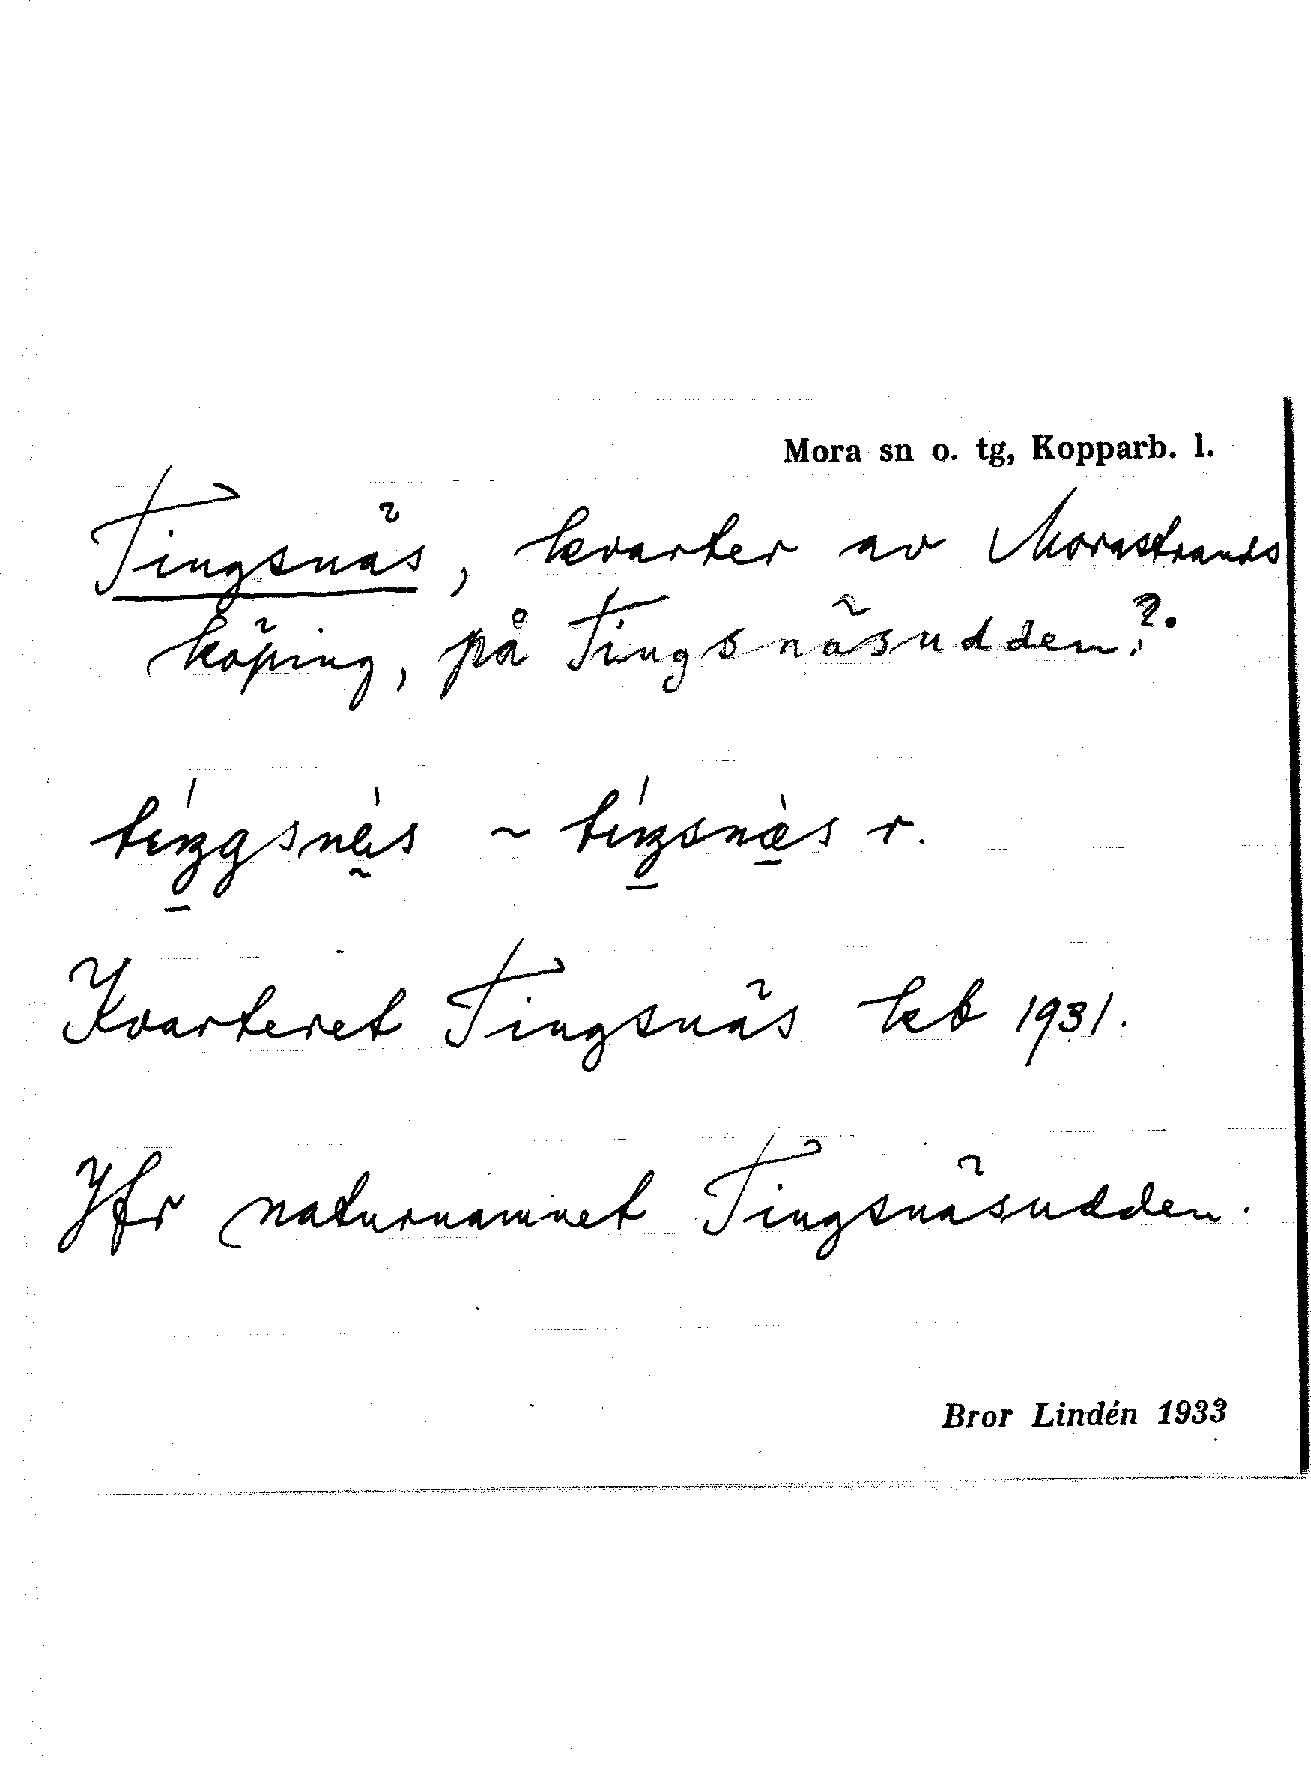 Mora sn o. tg, Kopparb. l.
Tingsnäs, kvarter av Morastrands
köping, på Tingsnäsudden?.
tíŋgsnḛ̀s ~ tíŋsnæ̀s r.
Kvarteret Tingsnäs kb 1931.
Jfr naturnamnet Tingsnäsudden.
Bror Lindén 1933